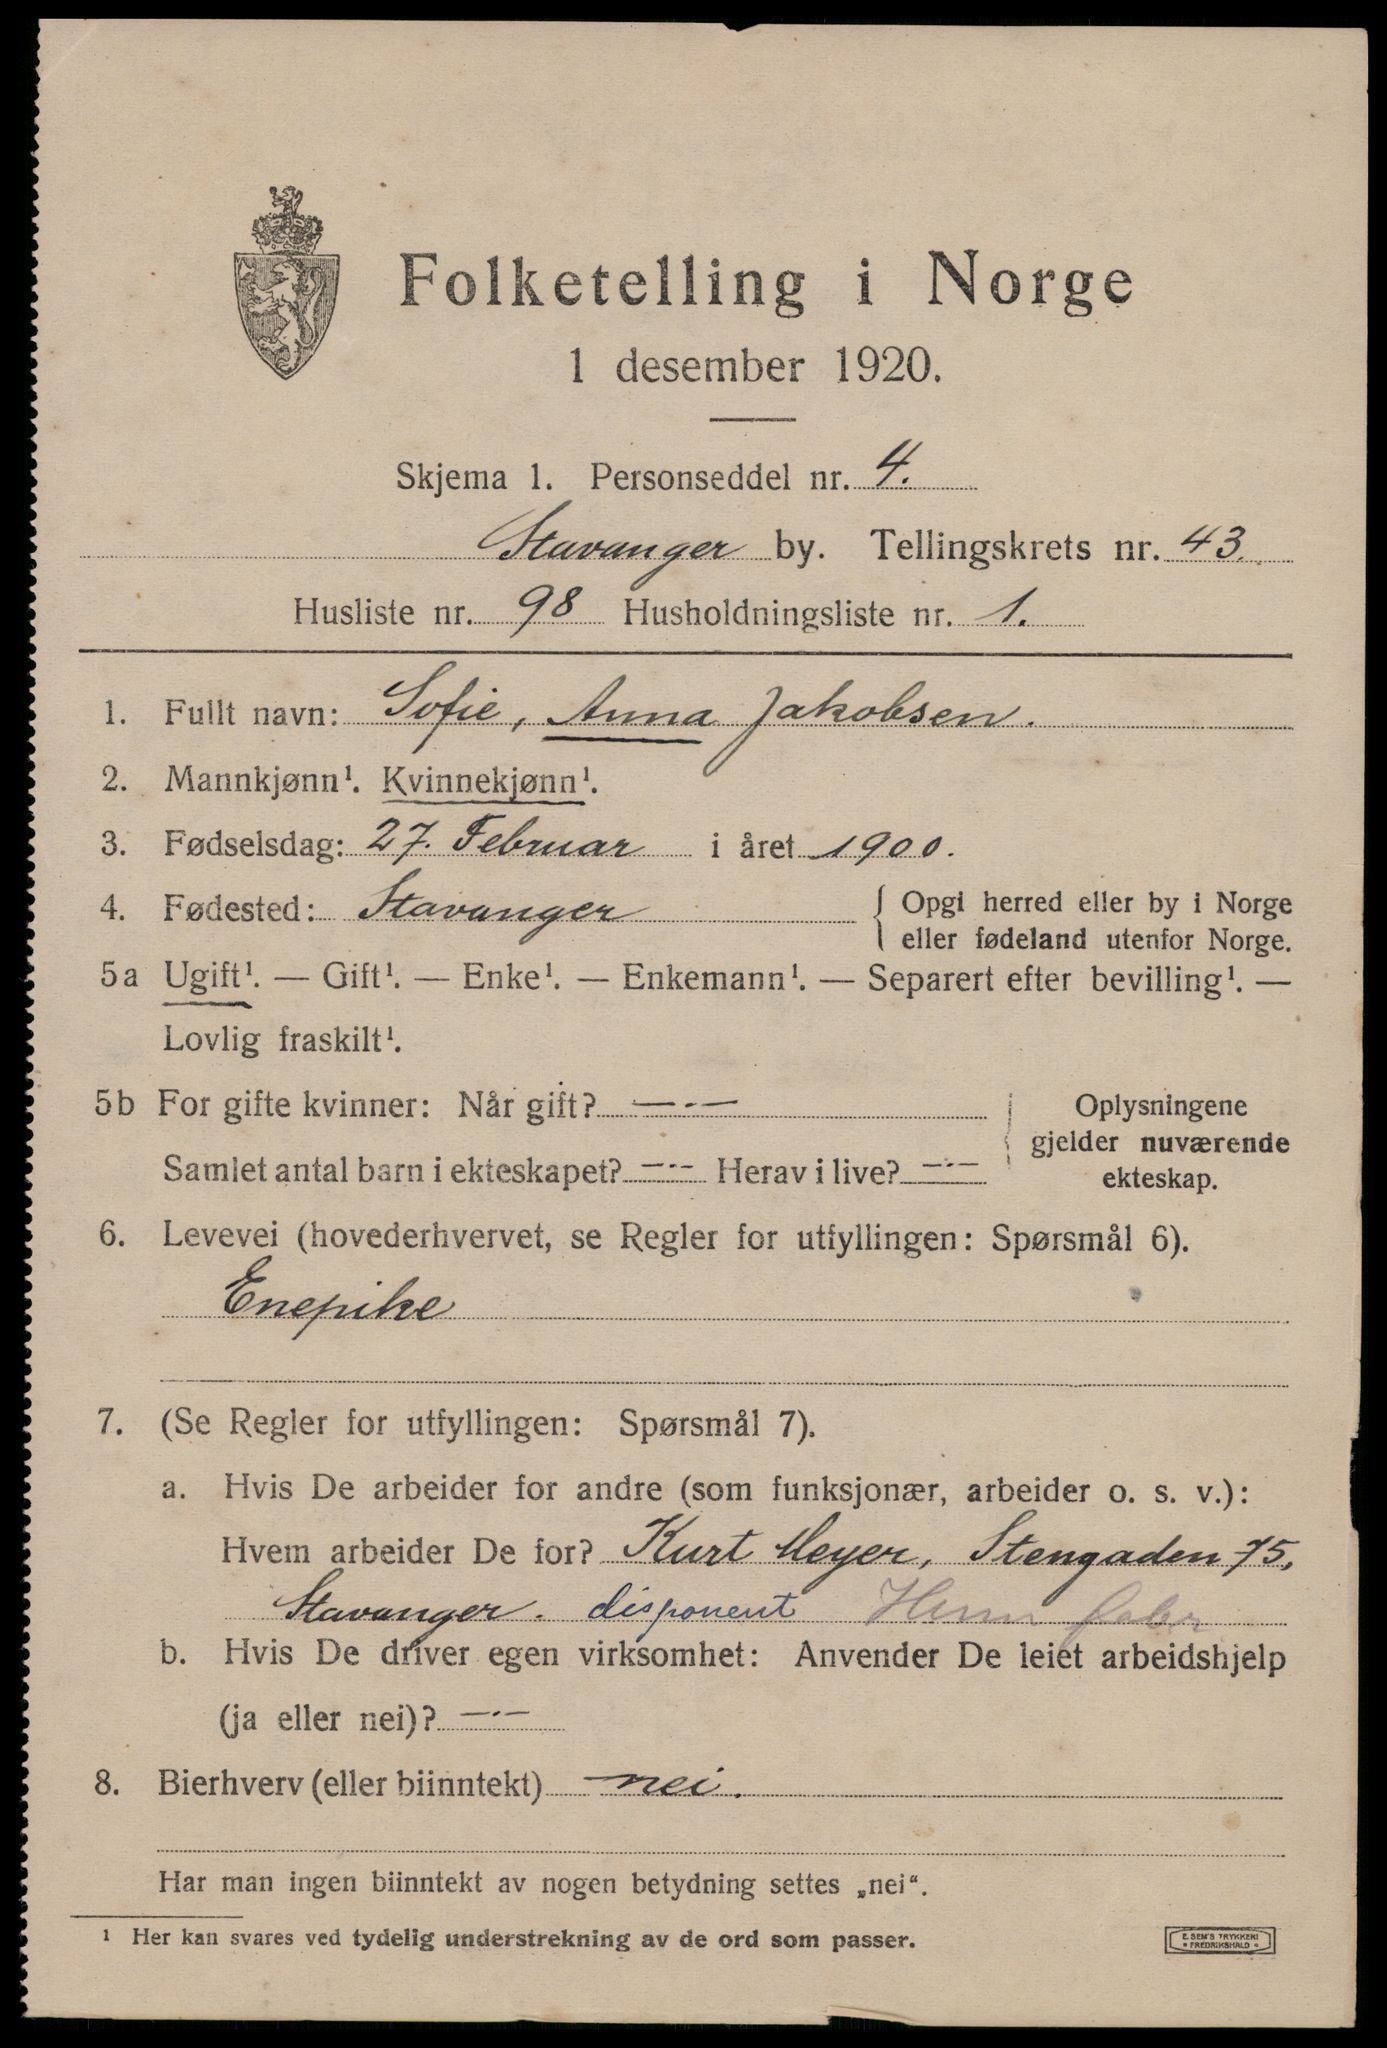 Folketelling i Norge
1 desember 1920.
Skjema 1. Personseddel nr. 4.
Stavanger by. Tellingskrets nr. 43.
Husliste nr. 98 Husholdningsliste nr. 1.
1. Fullt navn: Sofie, Anna Jakobsen.
2. Mannkjønn¹. Kvinnekjønn¹.
3. Fødselsdag: 27. Februar i året 1900.
4. Fødested: Stavanger { Opgi herred eller by i Norge
eller fødeland utenfor Norge.
5a Ugift¹. — Gift¹. — Enke¹. — Enkemann¹. — Separert efter bevilling¹. —
Lovlig fraskilt¹.
5b For gifte kvinner: Når gift? —·— { Oplysningene
gjelder nuværende
ekteskap.
Samlet antal barn i ekteskapet? —·— Herav i live? —·—
6. Levevei (hovederhvervet, se Regler for utfyllingen: Spørsmål 6).
Enepike
7. (Se Regler for utfyllingen: Spørsmål 7).
a. Hvis De arbeider for andre (som funksjonær, arbeider o. s. v.):
Hvem arbeider De for? Kurt Meyer, Stengaden 75,
Stavanger. disponent
b. Hvis De driver egen virksomhet: Anvender De leiet arbeidshjelp
(ja eller nei)? —·—
8. Bierhverv (eller biinntekt) nei.
Har man ingen biinntekt av nogen betydning settes „nei“.
¹ Her kan svares ved tydelig understrekning av de ord som passer.
E. SEM'S TRYKKERI
* FREDRIKSHALD *